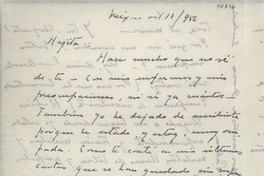 10816
oct 11/956
Hijita:
Hace mucho que no sé
de ti - Con mis enfermos y mis
preocupaciones, ni sé ya cuánto -
También yo he dejado de escribirte
porque he estado, y estoy, muy ocu-
pada. Como te conté en mis últimas
cartas que se han quedado sin